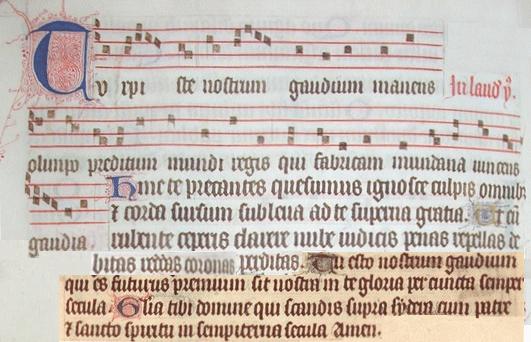 Tu xpi ste nostrum gaudium manens In laud' p̄.
olimpo preditum mundi regis qui fabricam mundana uincens
Hinc te precantes quesumus ignosce culpis omnib
⁊ corda sursum subleua ad te superna gratia. Ut cū
gaudia. rubente ceperis clarere nube iudicis penas repellas de
bitas reddas coronas perditas. Tu esto nostrum gaudium
qui es futurus premium sit nostra in te gloria per cuncta semper
secula. Glīa tibi domine qui scandis supra sydera cum patre
⁊ sancto spiritu in sempiterna secula Amen.